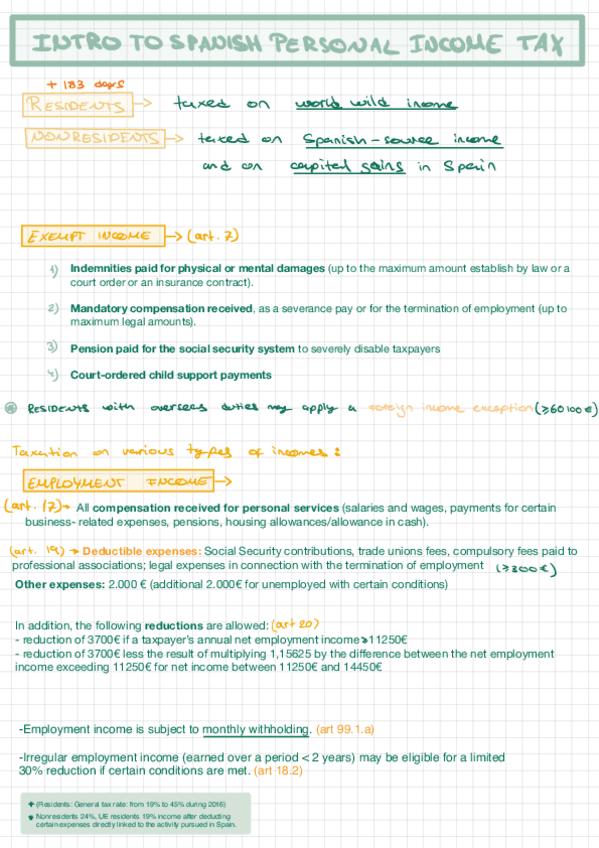 INTRO TO SPANISH PERSONAL INCOME TAX
+ 183 days
RESIDENTS → taxed on world wild income
NONRESIDENTS → taxed on Spanish-source income
and on capital gains in Spain
EXEMPT INCOME → (art. 7)
1) Indemnities paid for physical or mental damages (up to the maximum amount establish by law or a
court order or an insurance contract).
2) Mandatory compensation received, as a severance pay or for the termination of employment (up to
maximum legal amounts).
3) Pension paid for the social security system to severely disable taxpayers
4) Court-ordered child support payments
RESIDENTS with overseas duties may apply a foreign income exception (≥60100€)
Taxation on various types of incomes:
EMPLOYMENT INCOME →
(art. 17)→ All compensation received for personal services (salaries and wages, payments for certain
business- related expenses, pensions, housing allowances/allowance in cash).
(art. 19) → Deductible expenses: Social Security contributions, trade unions fees, compulsory fees paid to
professional associations; legal expenses in connection with the termination of employment (≥300€)
Other expenses: 2.000 € (additional 2.000€ for unemployed with certain conditions)
In addition, the following reductions are allowed: (art 20)
- reduction of 3700€ if a taxpayer's annual net employment income >11250€
- reduction of 3700€ less the result of multiplying 1,15625 by the difference between the net employment
income exceeding 11250€ for net income between 11250€ and 14450€
-Employment income is subject to monthly withholding. (art 99.1.a)
-Irregular employment income (earned over a period < 2 years) may be eligible for a limited
30% reduction if certain conditions are met. (art 18.2)
+ (Residents: General tax rate: from 19% to 45% during 2016)
Nonresidents 24%, UE residents 19% income after deducting
certain expenses directly linked to the activity pursued in Spain.